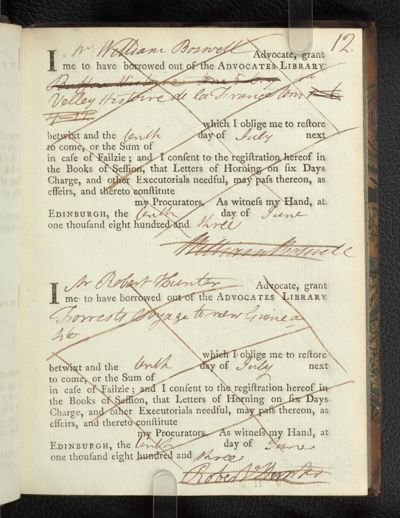 12.
I Mr William Boswell Advocate, grant
me to have borrowed out of the ADVOCATES LIBRARY
Velley Histoire de la France tom
which I oblige me to reſtore
betwixt and the tenth day of July next
to come, or the Sum of
in caſe of Failzie; and I conſent to the regiſtration hereof in
the Books of Seſſion, that Letters of Horning on ſix Days
Charge, and other Executorials needful, may paſs thereon, as
effeirs, and thereto conſtitute
my Procurators. As witneſs my Hand, at
EDINBURGH, the tenth day of June
one thouſand eight hundred and three
William Boswell
I Mr Robert Hunter Advocate, grant
me to have borrowed out of the ADVOCATES LIBRARY
Forrests Voyage to new Guinea
which I oblige me to reſtore
betwixt and the tenth day of July next
to come, or the Sum of
in caſe of Failzie; and I conſent to the regiſtration hereof in
the Books of Seſſion, that Letters of Horning on ſix Days
Charge, and other Executorials needful, may paſs thereon, as
effeirs, and thereto conſtitute
my Procurators. As witneſs my Hand, at
EDINBURGH, the tenth day of June
one thouſand eight hundred and three
Robert Hunter